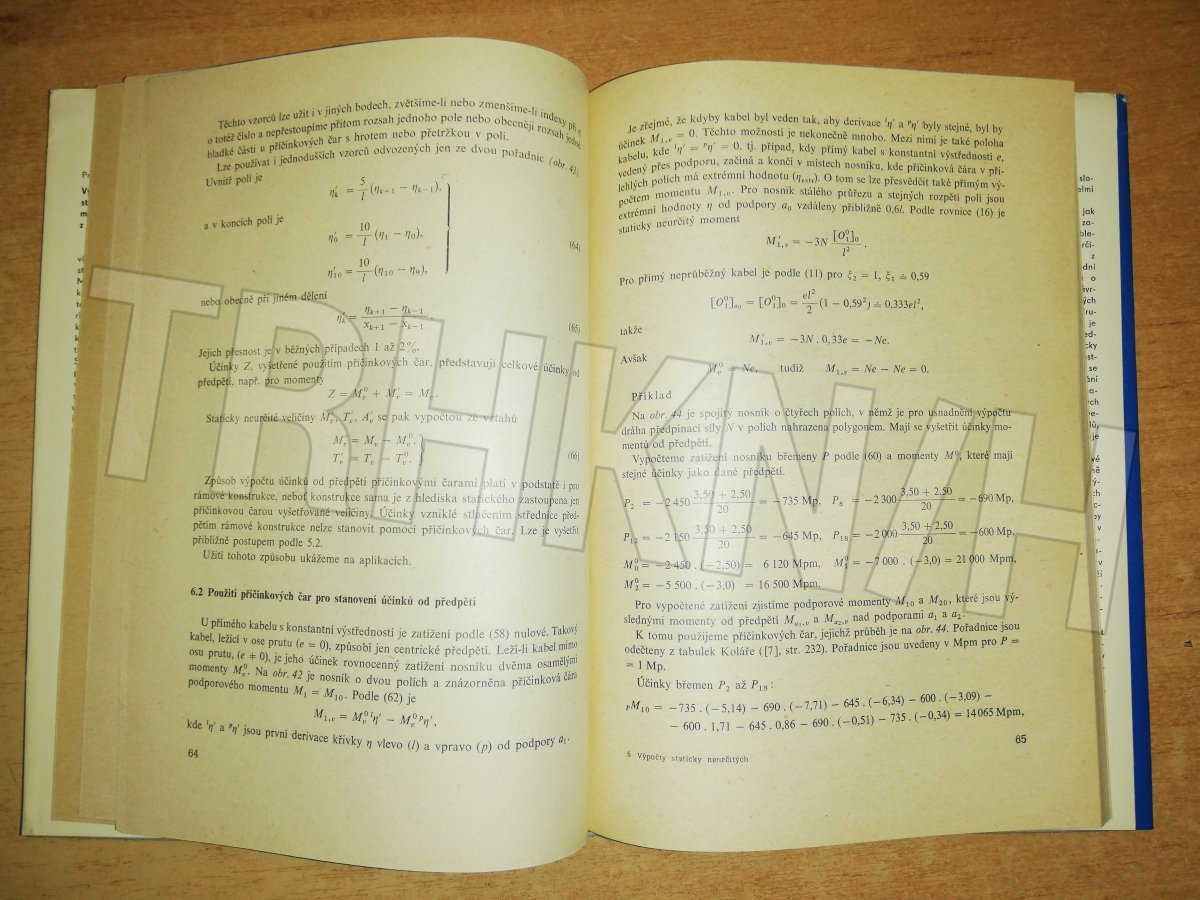 Těchto vzorců lze užit i v jiných bodech, zvětšíme-li nebo zmenšíme-li indexy při η
o totéž číslo a nepřestoupíme přitom rozsah jednoho pole nebo obecněji rozsah jedné
hladké části u příčinkových čar s hrotem nebo přetržkou v poli.
Lze používat i jednodušších vzorců odvozených jen ze dvou pořadnic (obr. 43).
Uvnitř polí je
η′k = 5/l (ηk+1 − ηk−1),
a v koncích polí je
η′0 = 10/l (η1 − η0),
(64)
η′10 = 10/l (η10 − η9),
nebo obecně při jiném dělení
η′k = (ηk+1 − ηk−1)/(xk+1 − xk−1).
(65)
Jejich přesnost je v běžných případech 1 až 2%.
Účinky Z, vyšetřené použitím příčinkových čar, představují celkové účinky od
předpětí, např. pro momenty
Z = M⁰v + M′v = Mv.
Staticky neurčité veličiny M′v, T′v, A′v se pak vypočtou ze vztahů
M′v = Mv − M⁰v.
T′v = Tv − T⁰v.
(66)
Způsob výpočtu účinků od předpětí příčinkovými čarami platí v podstatě i pro
rámové konstrukce, neboť konstrukce sama je z hlediska statického zastoupena jen
příčinkovou čarou vyšetřované veličiny. Účinky vzniklé stlačením střednice před-
pětím rámové konstrukce nelze stanovit pomocí příčinkových čar. Lze je vyšetřit
přibližně postupem podle 5.2.
Užití tohoto způsobu ukážeme na aplikacích.
6.2 Použití příčinkových čar pro stanovení účinků od předpětí
U přímého kabelu s konstantní výstředností je zatížení podle (58) nulové. Takový
kabel, ležící v ose prutu (e = 0), způsobí jen centrické předpětí. Leží-li kabel mimo
osu prutu, (e ≠ 0), je jeho účinek rovnocenný zatížení nosníku dvěma osamělými
momenty M⁰v. Na obr. 42 je nosník o dvou polích a znázorněna příčinková čára
podporového momentu M1 = M10. Podle (62) je
M1,v = M⁰v ˡη′ − M⁰v ᵖη′,
kde ˡη′ a ᵖη′ jsou první derivace křivky η vlevo (l) a vpravo (p) od podpory a1.
64
Je zřejmé, že kdyby kabel byl veden tak, aby derivace ˡη′ a ᵖη′ byly stejné, byl by
účinek M1,v = 0. Těchto možností je nekonečně mnoho. Mezi nimi je také poloha
kabelu, kde ˡη′ = ᵖη′ = 0, tj. případ, kdy přímý kabel s konstantní výstředností e,
vedený přes podporu, začíná a končí v místech nosníku, kde příčinková čára v při-
lehlých polích má extrémní hodnotu (ηextr). O tom se lze přesvědčit také přímým vý-
počtem momentu M1,v. Pro nosník stálého průřezu a stejných rozpětí polí jsou
extrémní hodnoty η od podpory a0 vzdáleny přibližně 0,6l. Podle rovnice (16) je
staticky neurčitý moment
M′1,v = −3N [O⁰1]0 / l².
Pro přímý neprůběžný kabel je podle (11) pro ξ2 = 1, ξ1 ≐ 0,59
[O⁰1]a0 = [O⁰1]0 = el²/2 (1 − 0,59²) ≐ 0,333el²,
takže
M′1,v = −3N . 0,33e = −Ne.
Avšak
M⁰v = Ne, tudíž M1,v = Ne − Ne = 0.
Příklad
Na obr. 44 je spojitý nosník o čtyřech polích, v němž je pro usnadnění výpočtu
dráha předpínací síly N v polích nahrazena polygonem. Mají se vyšetřit účinky mo-
mentů od předpětí.
Vypočteme zatížení nosníku břemeny P podle (60) a momenty M⁰, které mají
stejné účinky jako dané předpětí.
P2 = −2 450 (3,50 + 2,50)/20 = −735 Mp, P8 = −2 300 (3,50 + 2,50)/20 = −690 Mp,
P12 = −2 150 (3,50 + 2,50)/20 = −645 Mp, P18 = −2 000 (3,50 + 2,50)/20 = −600 Mp,
M⁰0 = −2 450 . (−2,50) = 6 120 Mpm, M⁰1 = −7 000 . (−3,0) = 21 000 Mpm,
M⁰2 = −5 500 . (−3,0) = 16 500 Mpm.
Pro vypočtené zatížení zjistíme podporové momenty M10 a M20, které jsou vý-
slednými momenty od předpětí Ma1,v a Ma2,v nad podporami a1 a a2.
K tomu použijeme příčinkových čar, jejichž průběh je na obr. 44. Pořadnice jsou
odečteny z tabulek Koláře ([7], str. 232). Pořadnice jsou uvedeny v Mpm pro P =
= 1 Mp.
Účinky břemen P2 až P18:
PM10 = −735 . (−5,14) − 690 . (−7,71) − 645 . (−6,34) − 600 . (−3,09) −
− 600 . 1,71 − 645 . 0,86 − 690 . (−0,51) − 735 . (−0,34) = 14 065 Mpm,
5 Výpočty staticky neurčitých
65
TRHKNIH